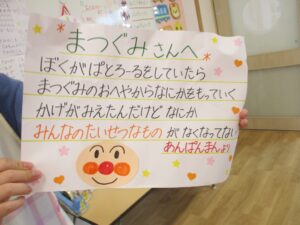 まつぐみさんへ
ぼくがぱとろーるをしていたら
まつぐみのおへやからなにかをもっていく
かげがみえたんだけど なにか
みんなのたいせつなもの がなくなってない
あんぱんまんより